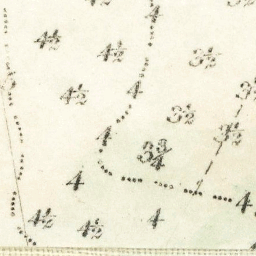 4
4½ 4½ 3½
4½ 4 3½ 3
4 3¾ 3½
4 4
4½ 4½ 4